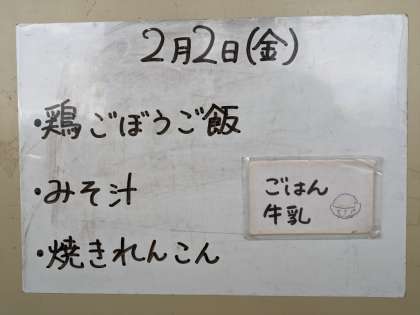 2月2日(金)
・鶏ごぼうご飯
・みそ汁
・焼きれんこん
ごはん
牛乳